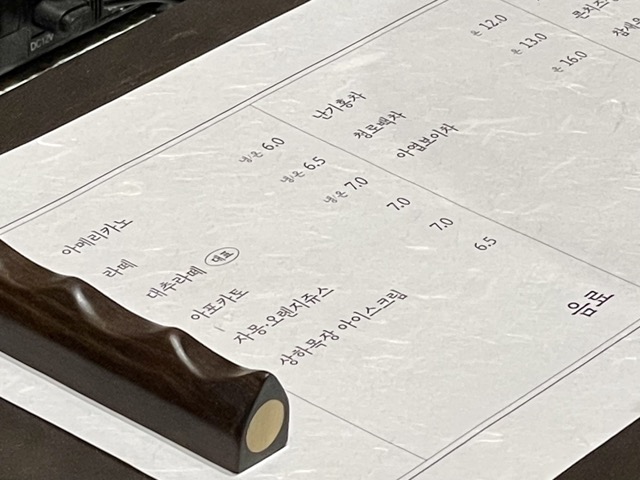 음료
아메리카노 냉·온 6.0
라떼 냉·온 6.5
대추라떼 대표 냉·온 7.0
아포카토 7.0
자몽·오렌지쥬스 7.0
상하목장 아이스크림 6.5
난기홍차 온 12.0
청로백차 온 13.0
야엽보이차 온 16.0
DC12V